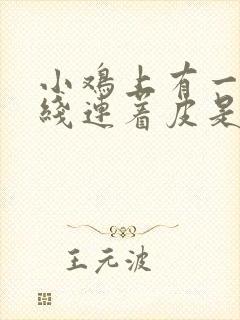 小鸡上有一
线连着皮是
王元波